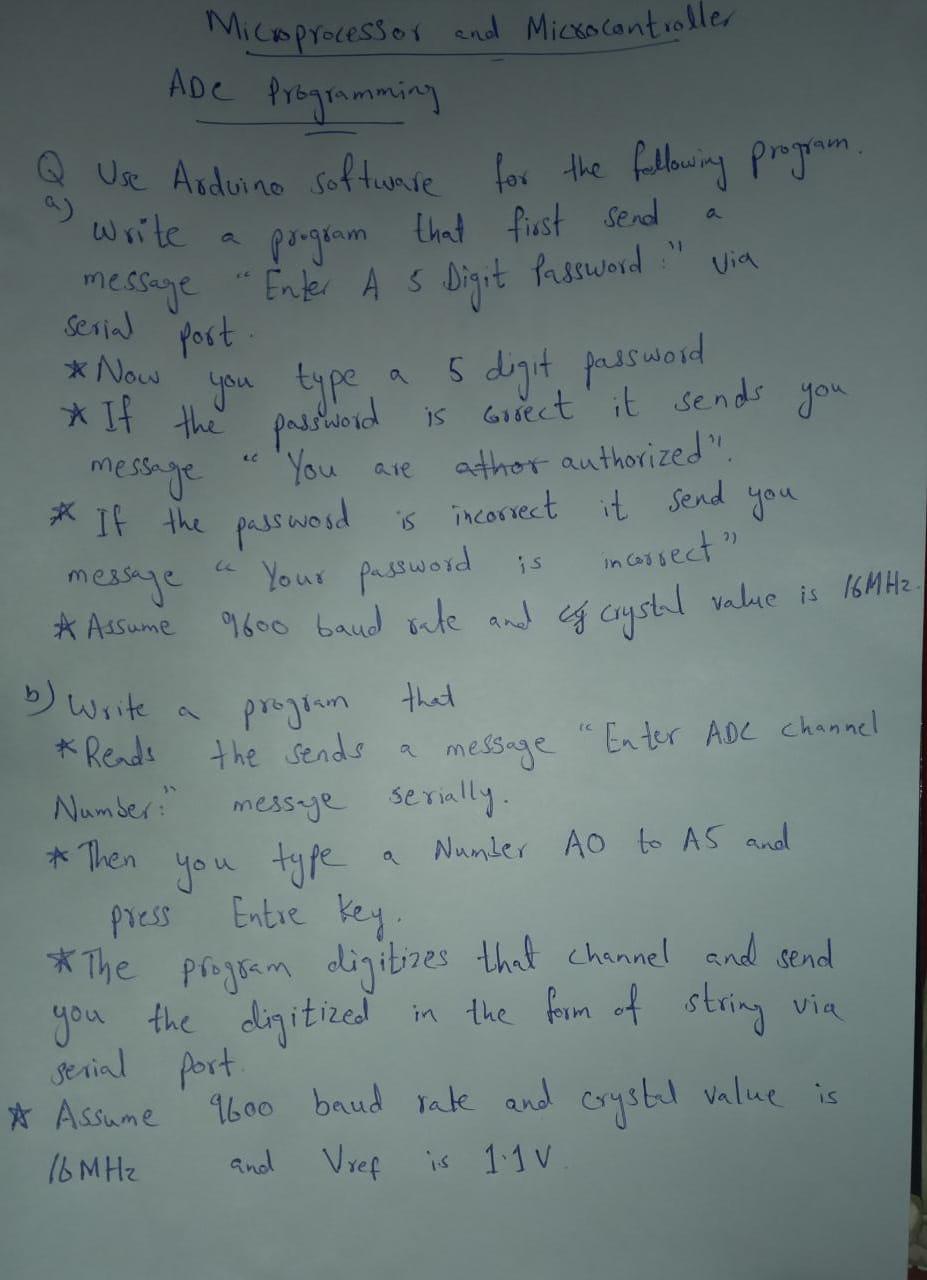 Microprocessor and Microcontroller
ADC Programming
Q Use Arduino software for the following program.
a) Write a program that first send a
message "Enter A 5 Digit Password:" via
serial port.
* Now you type a 5 digit password
* If the password is correct it sends you
message "You are athor authorized".
* If the password is incorrect it send you
message "Your password is incorrect"
* Assume 9600 baud rate and cy crystal value is 16MHz.
b) Write a program that
* Reads the sends a message "Enter ADC channel
Number:" messege serially.
* Then you type a Number A0 to A5 and
press Entre key.
* The program digitizes that channel and send
you the digitized in the form of string via
serial port.
* Assume 9600 baud rate and crystal value is
16MHz and Vref is 1.1V.